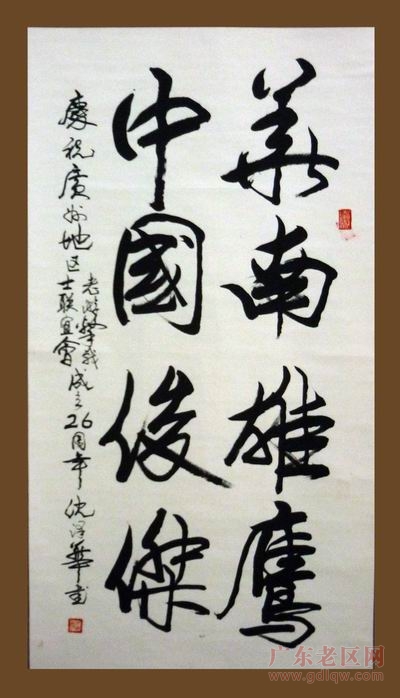 華南雄鷹
中國俊傑
慶祝廣州地区
老游擊战
士联宜會
成立26周年 沈泽華书
广东老区网
www.gdlqw.com